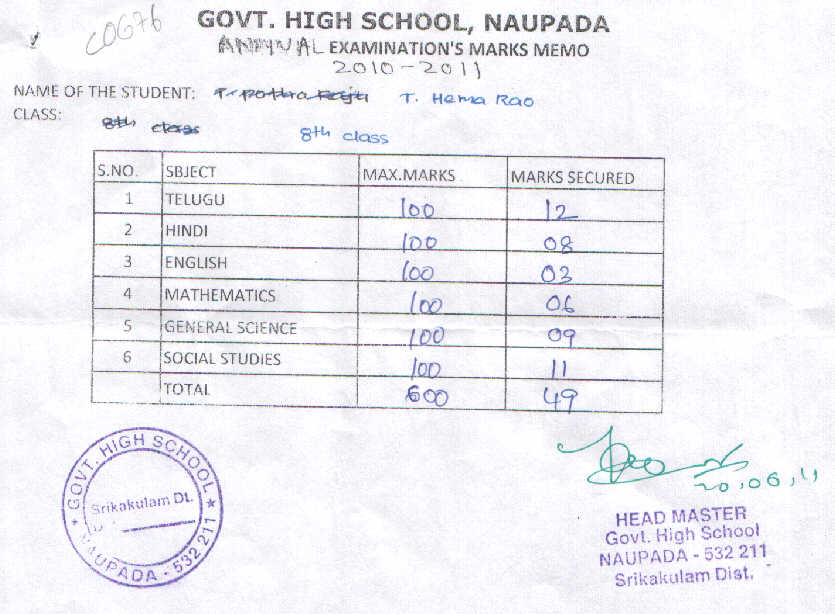 COG76
GOVT. HIGH SCHOOL, NAUPADA
ANNUAL EXAMINATION'S MARKS MEMO
2010-2011
NAME OF THE STUDENT: T. Pothra Raju T. Hema Rao
CLASS: 8th class 8th class
S.NO. SBJECT MAX.MARKS MARKS SECURED
1 TELUGU 100 12
2 HINDI 100 08
3 ENGLISH 100 03
4 MATHEMATICS 100 06
5 GENERAL SCIENCE 100 09
6 SOCIAL STUDIES 100 11
TOTAL 600 49
GOVT. HIGH SCHOOL
Srikakulam Dt.
NAUPADA - 532 211
20,06,11
HEAD MASTER
Govt. High School
NAUPADA - 532 211
Srikakulam Dist.